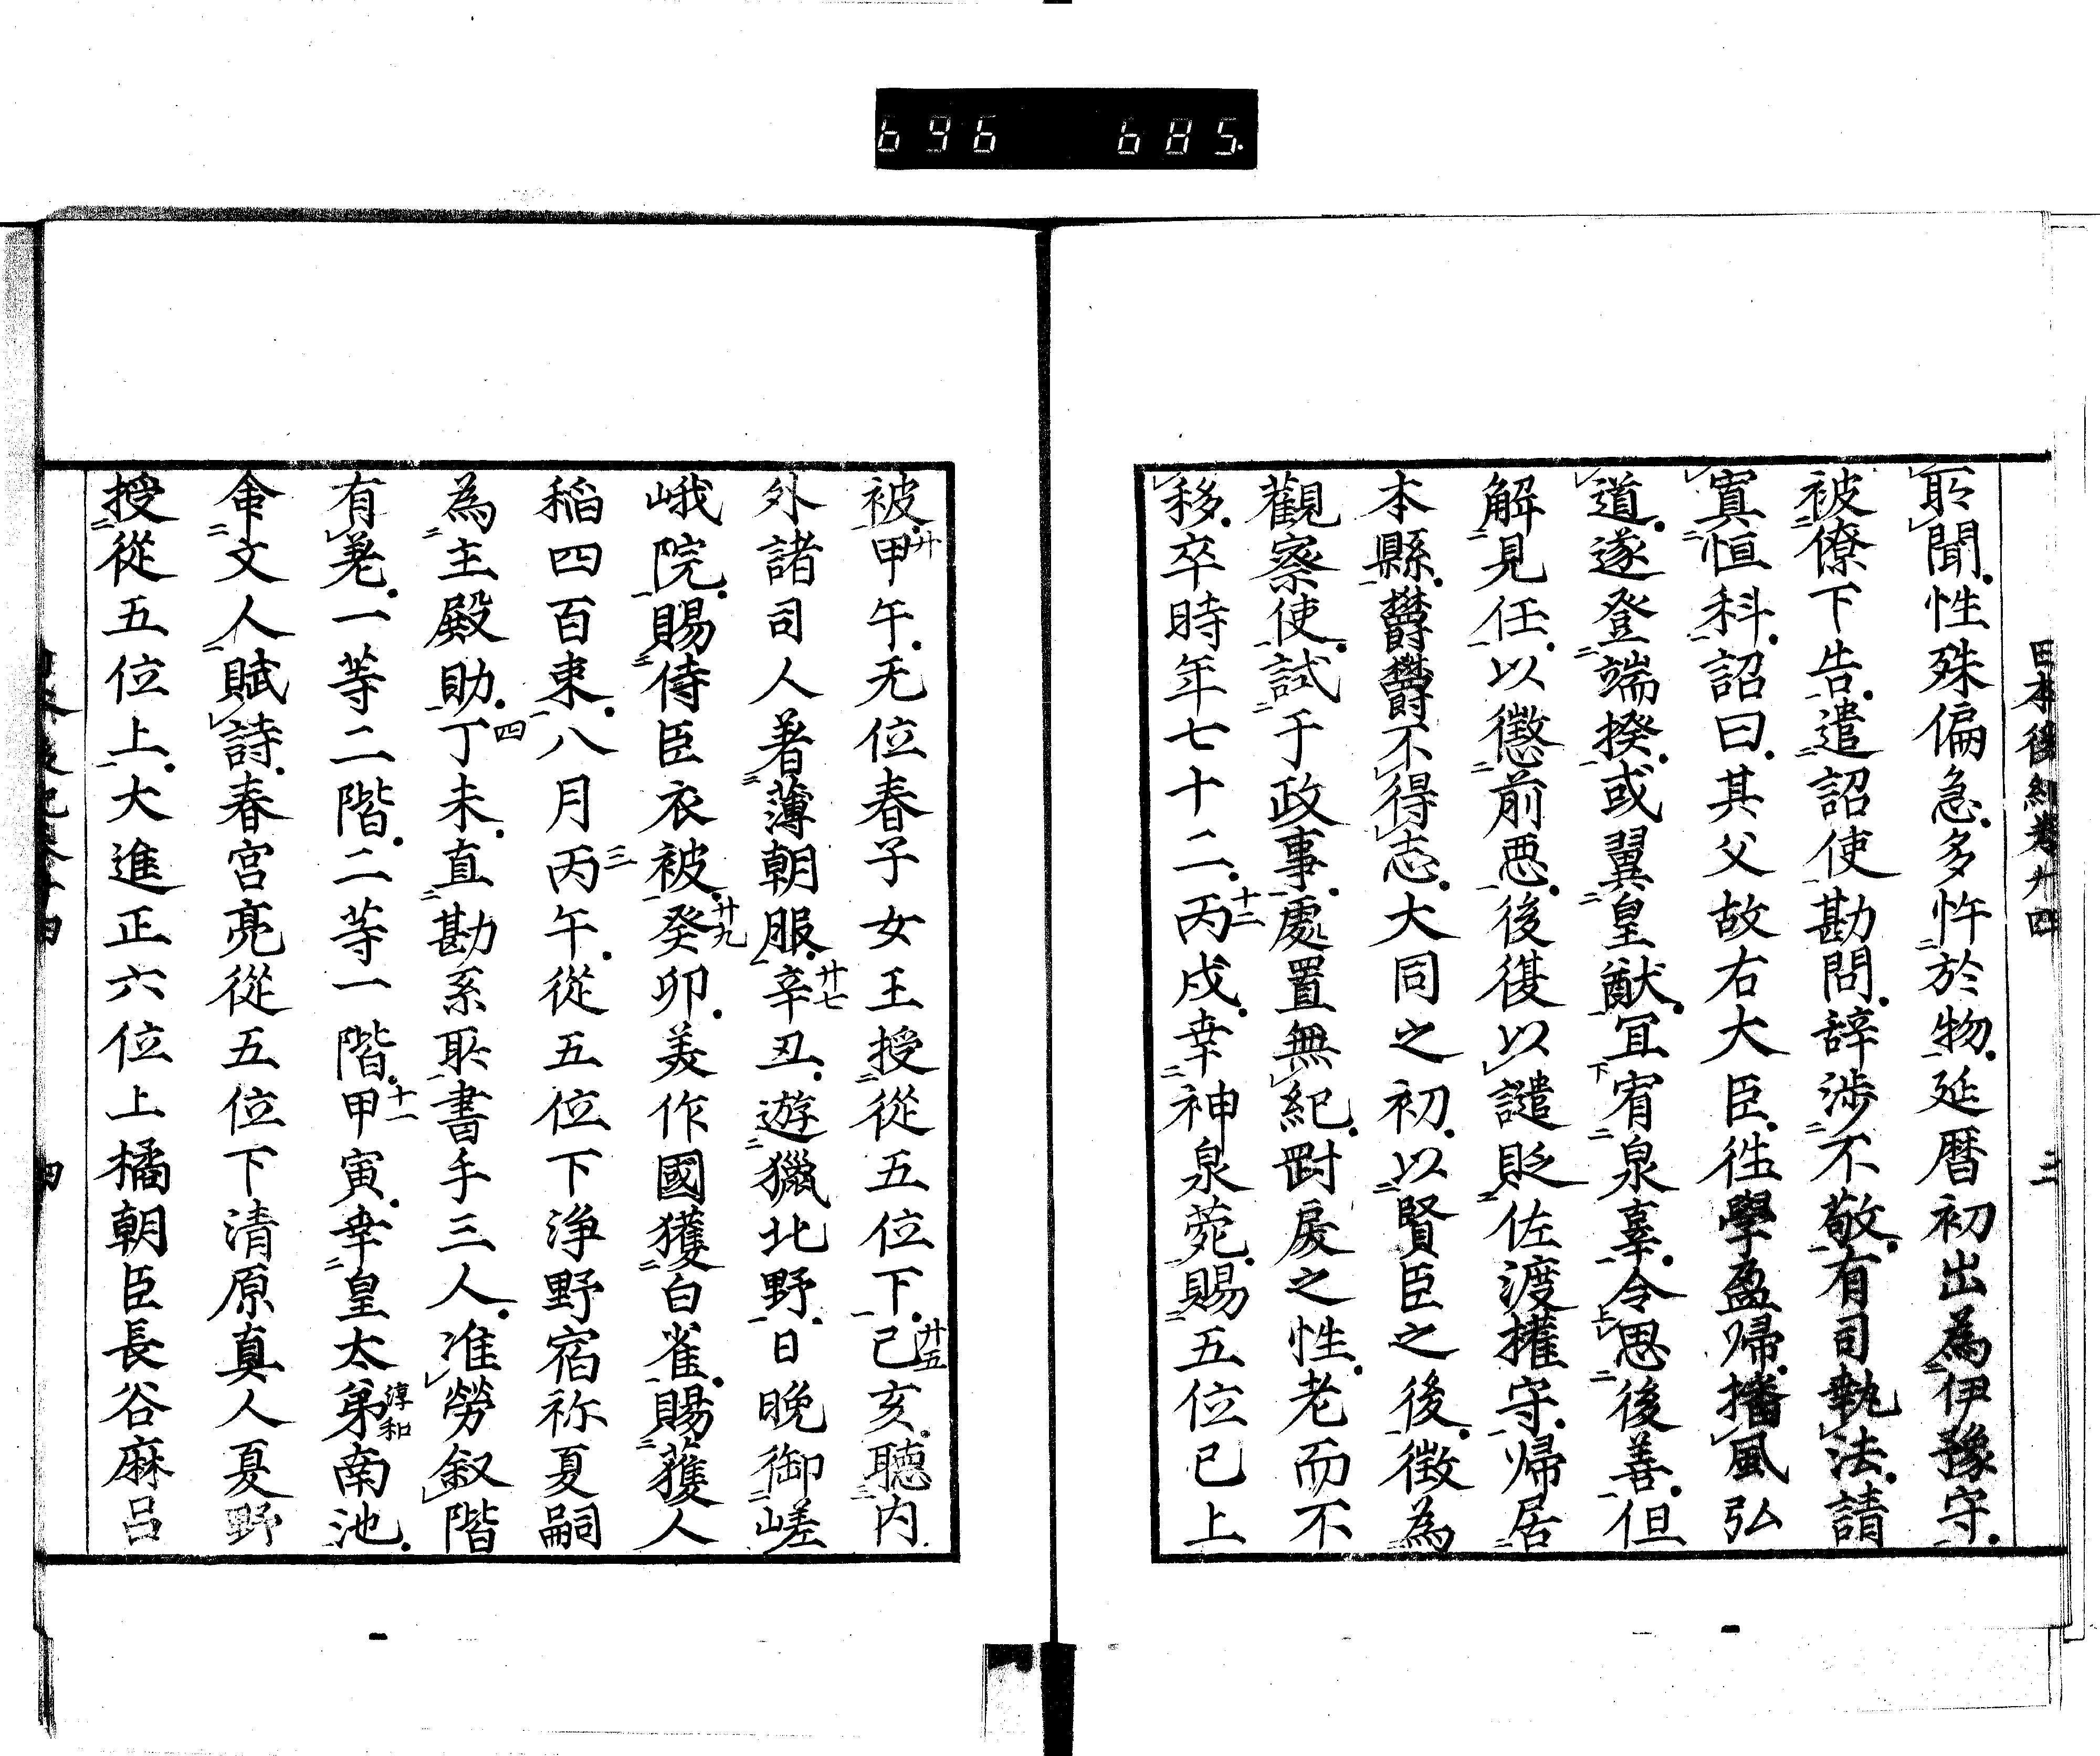 696 685.
日本後紀卷廿四 三
所聞性殊偏急多忤於物延暦初出為伊豫守
被僚下告遣詔使勘問辞渉不敬有司執法請
寘恒科詔曰其父故右大臣徃學盈帰播風弘
道遂登端揆或翼皇猷冝宥泉辜令思後善但
解見任以懲前悪後復以譴貶佐渡權守帰居
本縣欝欝不得志大同之初以賢臣之後徴為
觀察使試于政事處置無紀對戻之性老而不
移卒時年七十二丙戌幸神泉苑賜五位已上
十二
被甲午无位春子女王授從五位下己亥聴内
廿 廿五
外諸司人著薄朝服辛丑遊獵北野日晩御嵯
廿七
峨院賜侍臣衣被癸卯美作國獲白雀賜獲人
廿九
稲四百束八月丙午從五位下浄野宿祢夏嗣
三
為主殿助丁未直勘系所書手三人准勞叙階
四
有差一等二階二等一階甲寅幸皇太弟南池
十一 淳和
命文人賦詩春宮亮從五位下清原真人夏野
授從五位上大進正六位上橘朝臣長谷麻呂
四